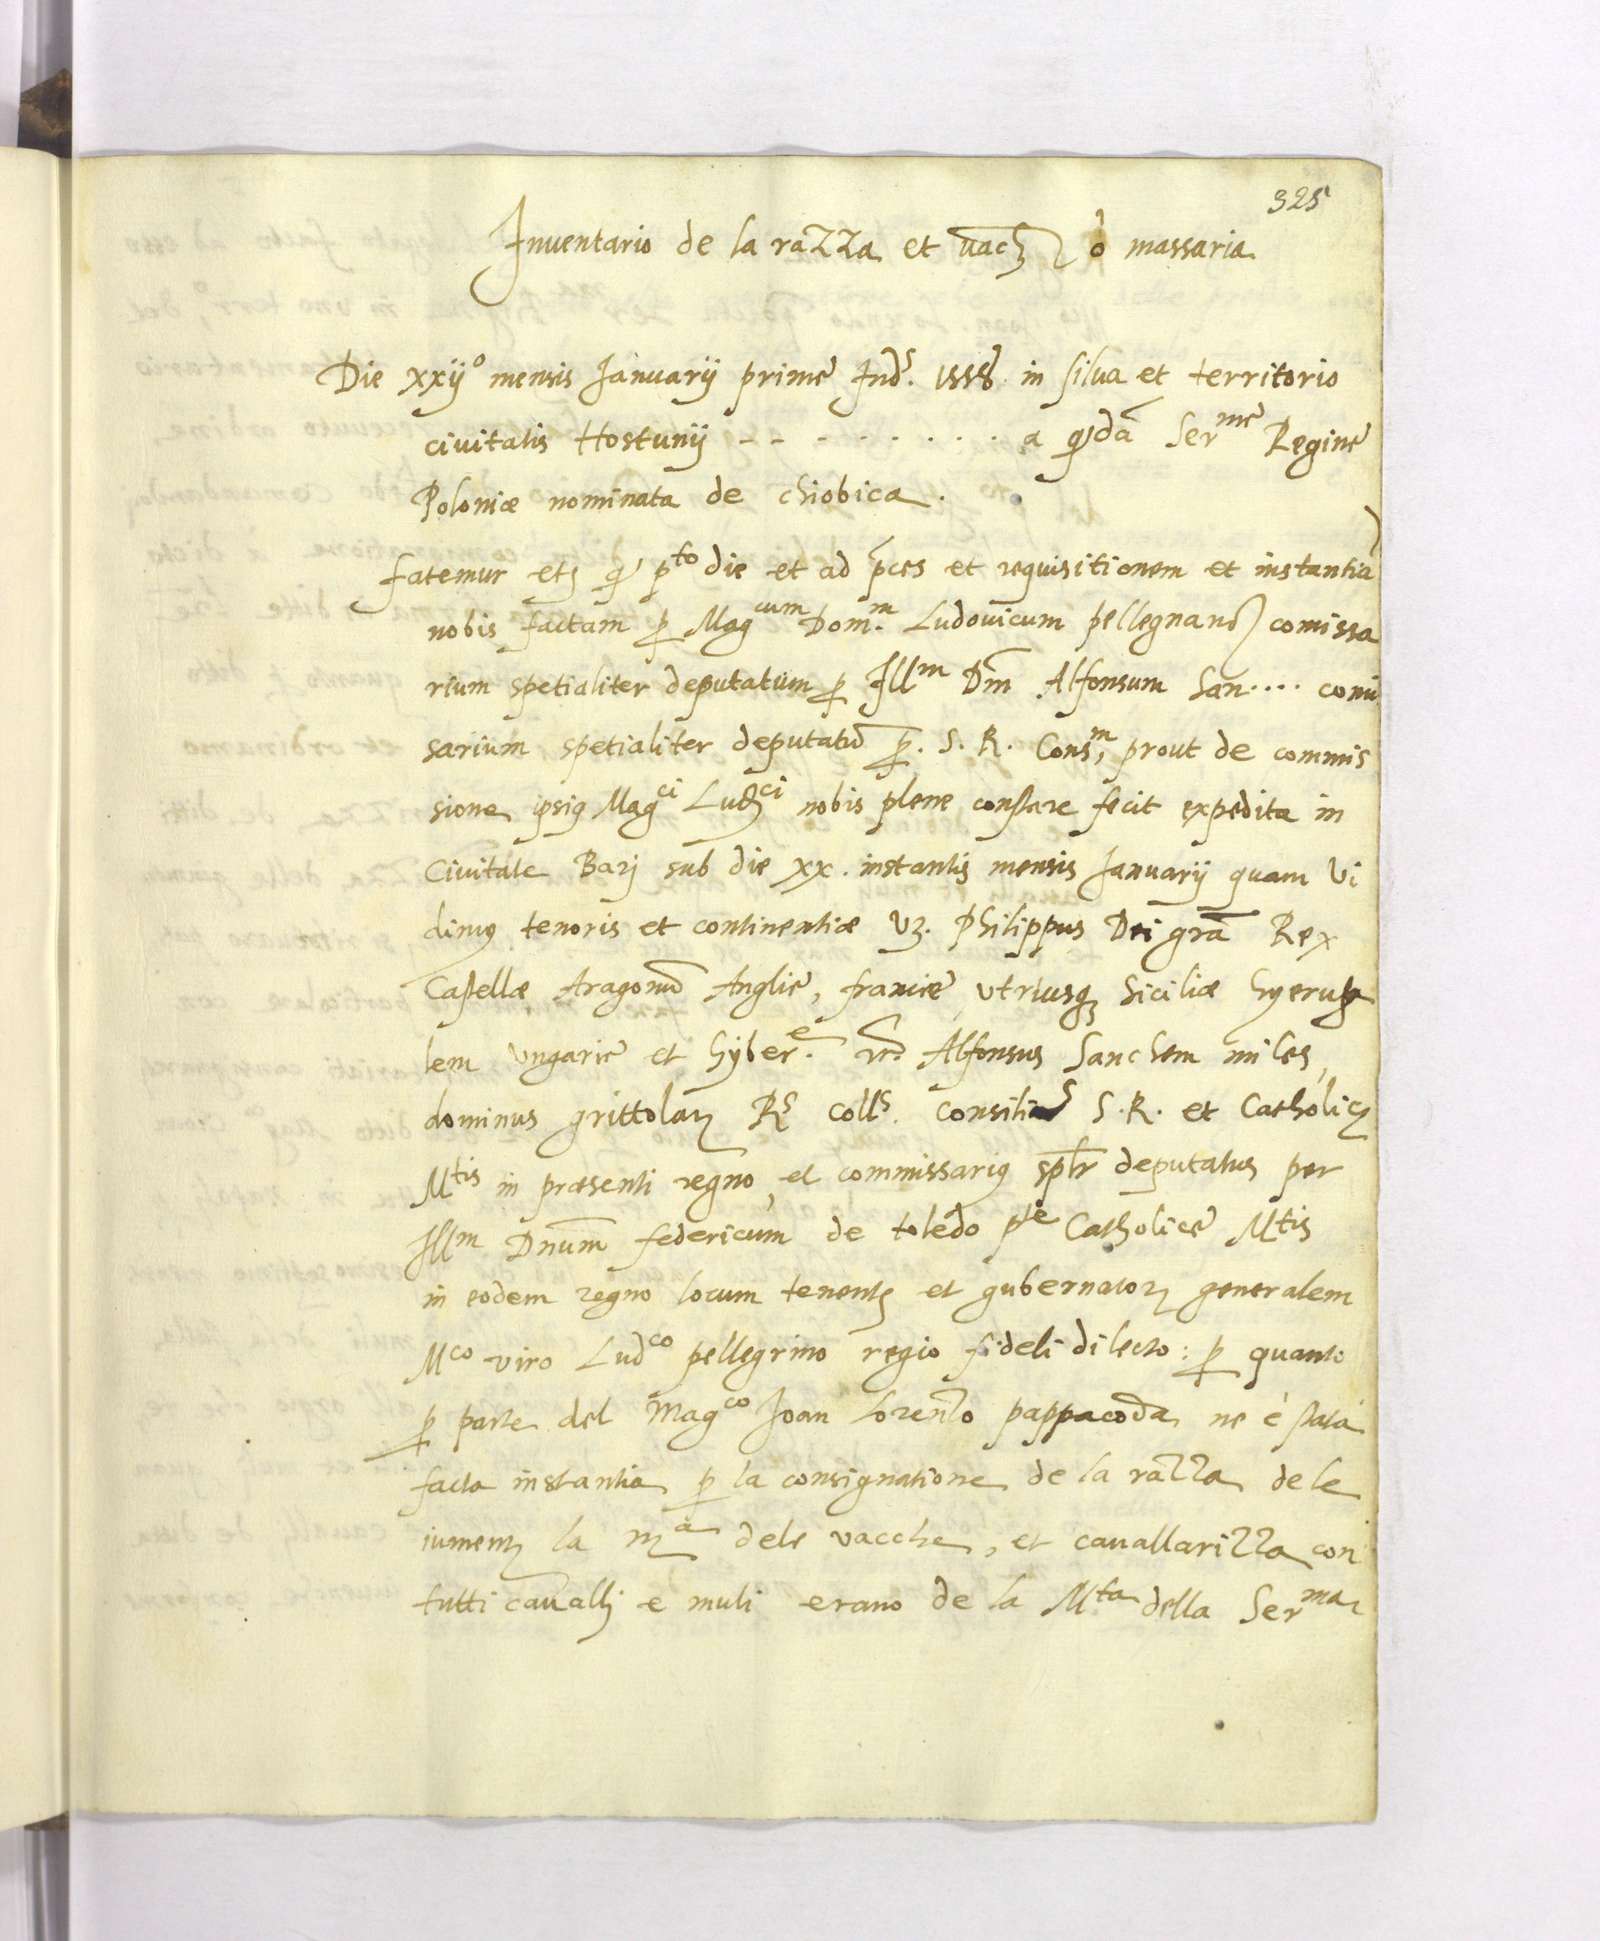 325
Inventario de la razza et vacc ò massaria
Die xxijº mensis Januarij prime Indˢ. 1558 in silva et territorio
civitatis Hostunij - - - · · · · · · · a qdā Serᵐᵉ Regine
Poloniæ nominata de chiobica.
fatemur etc q pᵗᵒ die et ad pces et requisitionem et instantiā
nobis factam p Magᶜᵘᵐ Domᵐ Ludovicum pellegnan comissa
rium spetialiter deputatum p Illᵐ Dm̄ Alfonsum San···· comi
sarium spetialiter deputatū p. S. R. Consᵐ, prout de commis
sione ipsiꝰ Magᶜⁱ Ludᶜⁱ nobis plene constare fecit expedita in
Civitate Barj sub die xx. instantis mensis Januarij quam vi
dimꝰ tenoris et continentiæ vz. Philippus Dei grā Rex
Castellæ Aragonū Anglie, francie, utriusqꝫ Siciliæ hyerusa
lem ungarie et hyberᵉ. Alfonsus Sanchem miles,
dominus grittolaꝝ Rˢ collˢ. consiliˢ S. R. et Catholic
Mᵗⁱˢ in præsenti regno, et commissariꝰ splr deputatus per
Illᵐ Dnum̄ federicum de toledo pᵗᵉ Catholice Mᵗⁱˢ
in eodem regno locum tenent et gubernatoꝝ generalem
Mᶜᵒ viro Ludᶜᵒ pellegrino regio fideli dilecto: p quanto
p parte del Magᶜᵒ Joan Lorenᵗo pappacoda ne è stata
facta instantia p la consignatione de la razza de le
iument la mᵃ dele vacche, et cavallarizza con
tutti cavallj e muli erano de la Mᵗᵃ della Serᵐᵃ